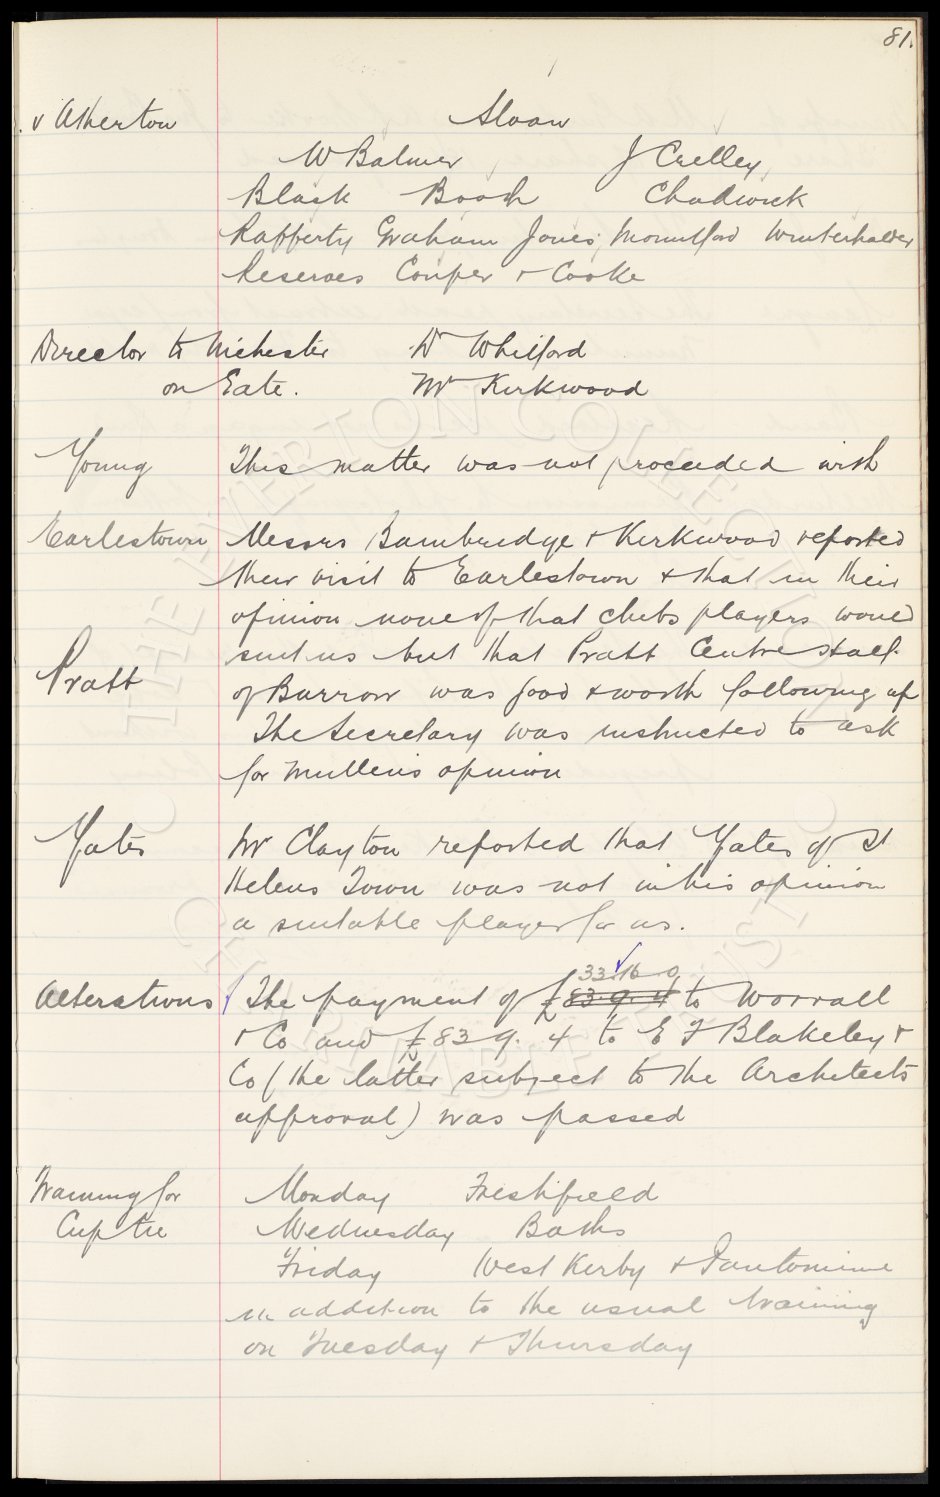 81.
v Atherton Sloan
W Balmer J Crelley
Black Booth Chadwick
Rafferty Graham Jones Mountford Winterhalder
Reserves Couper & Cooke
Director to M'chester Dr Whitford
on Gate. Mr Kirkwood
Young This matter was not proceeded with
Earlestown Messrs Bainbridge & Kirkwood reported
their visit to Earlestown & that in their
opinion none of that clubs players would
suit us but that Pratt Centre Half
Pratt of Barrow was good & worth following up
The Secretary was instructed to ask
for Mullens opinion
Yates Mr Clayton reported that Yates of St
Helens Town was not in his opinion
a suitable player for us.
33.16.9
Alterations The payment of £83.9.4 to Worrall
& Co and £83 9. 4 to E F Blakeley &
Co (the latter subject to the Architects
approval) was passed
Training for Monday Freshfield
Cup tie Wednesday Baths
Friday West Kirby & Pantomime
in addition to the usual training
on Tuesday & Thursday
THE EVERTON COLLECTION
CHARITABLE TRUST